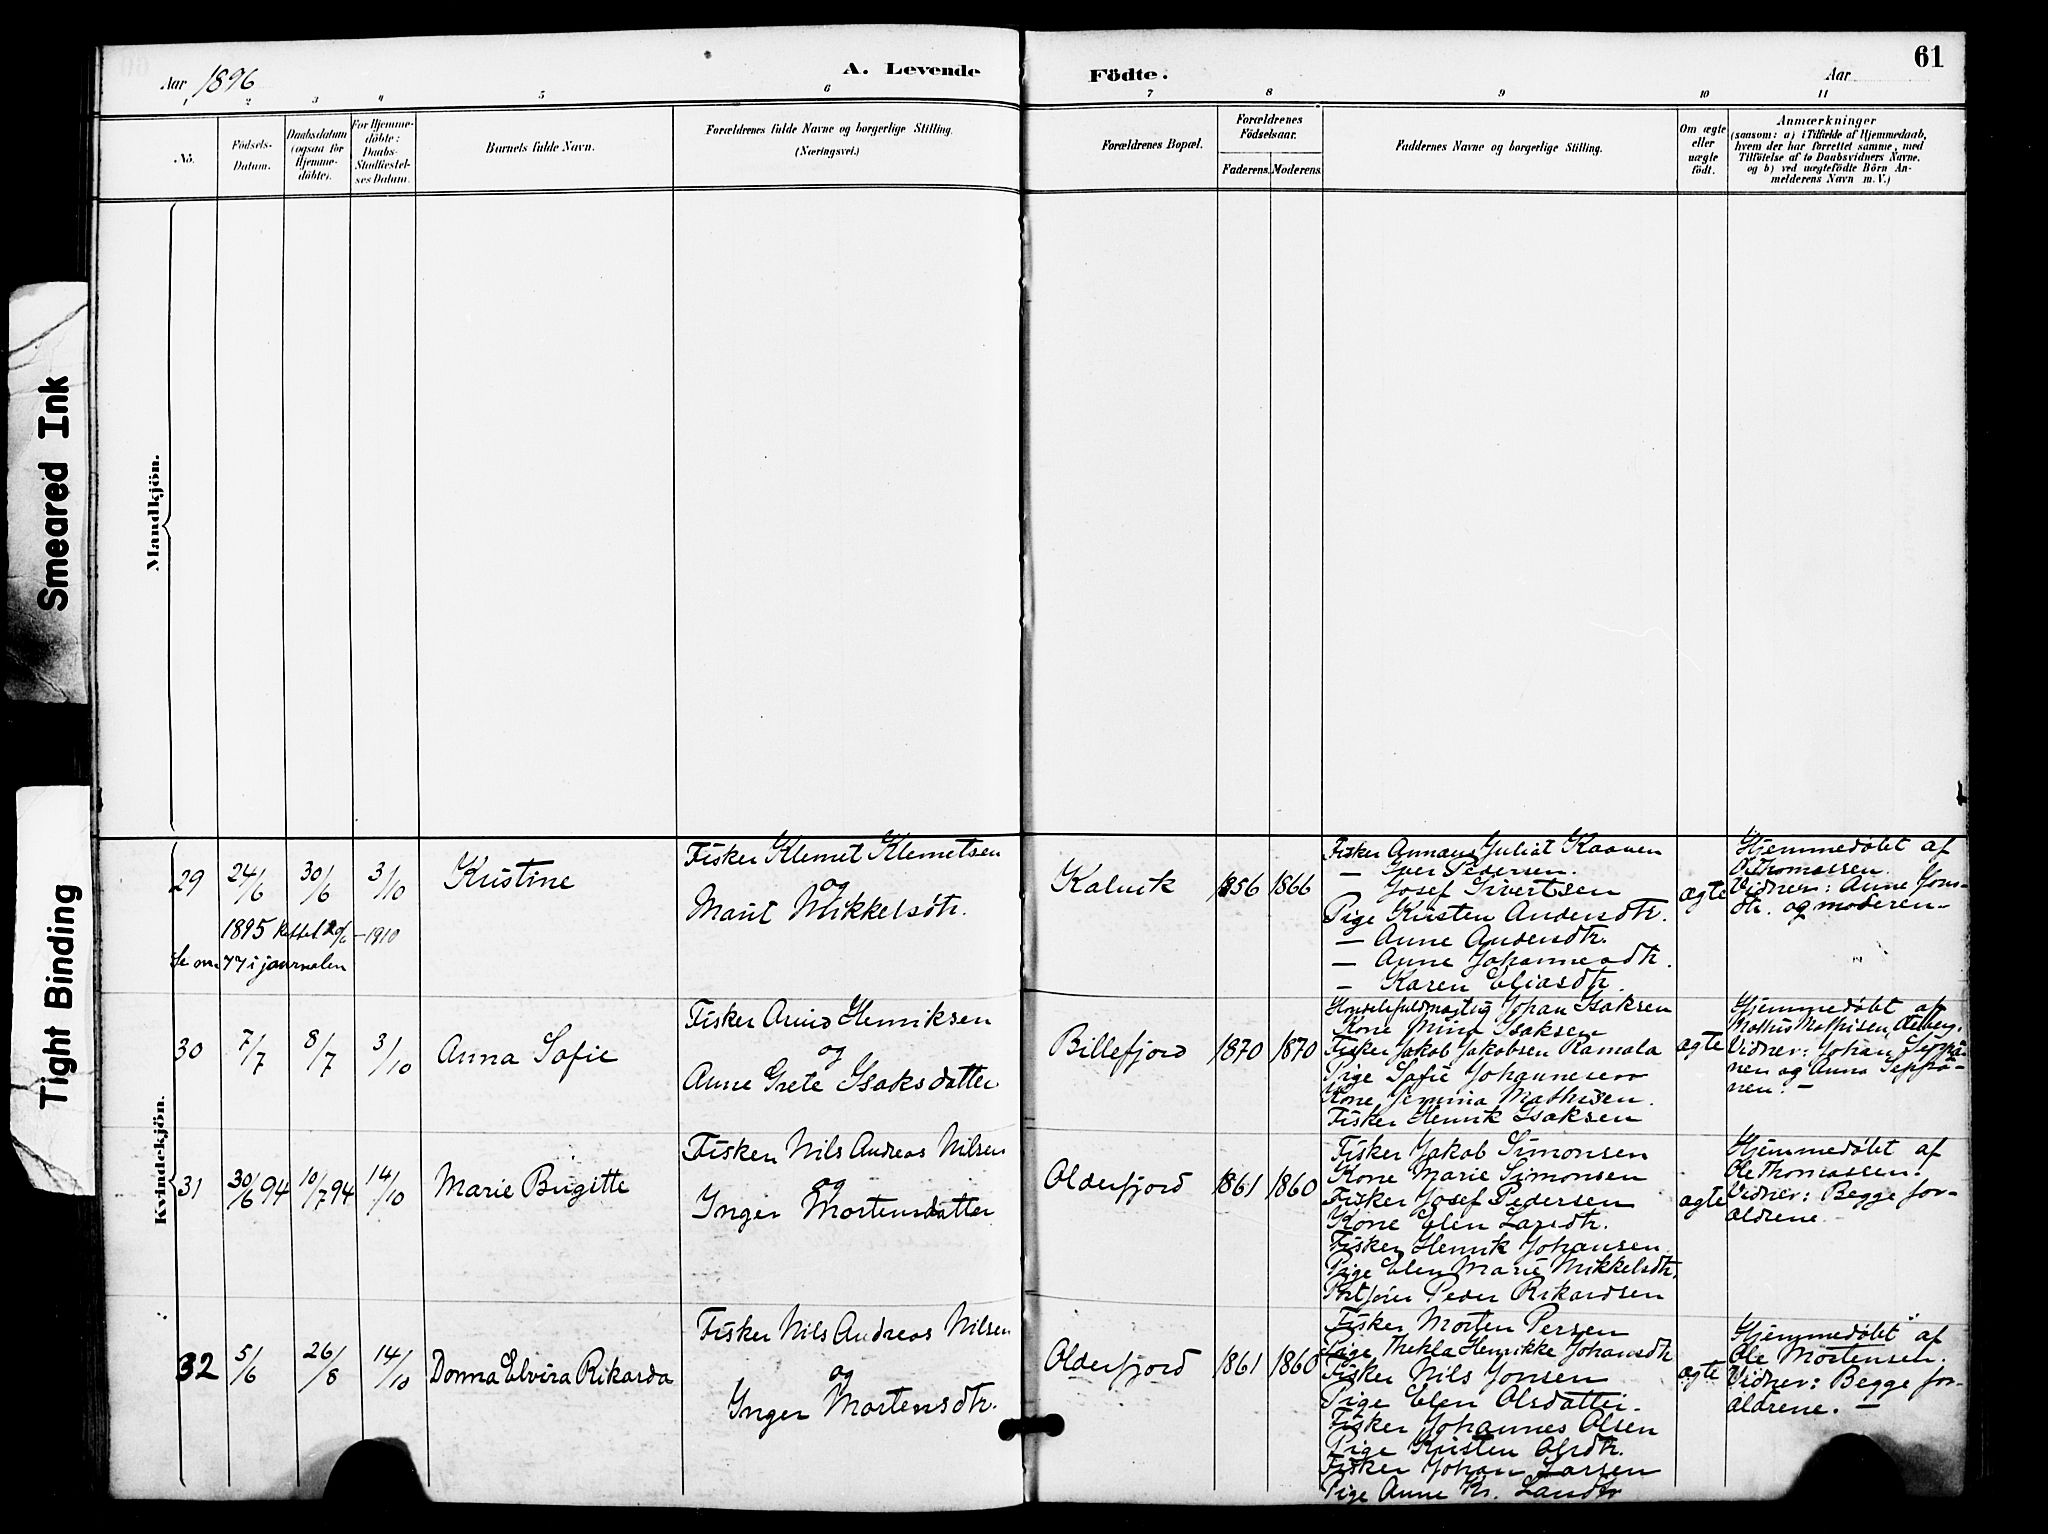 Aar 1896
A. Levende Födte.
Aar
61
1 2 3 4 5 6 7 8 9 10 11
No.
Födsels-
Datum.
Daabsdatum
(ogsaa for
Hjemme-
döbte).
For Hjemme-
döbte:
Daabs-
Stadfæstel-
ses Datum.
Barnets fulde Navn.
Forældrenes fulde Navne og borgerlige Stilling.
(Næringsvei.)
Forældrenes Bopæl.
Forældrenes
Födselsaar.
Faderens. Moderens.
Faddernes Navne og borgerlige Stilling.
Om ægte
eller
uægte
födt.
Anmærkninger
(saasom: a) i Tilfælde af Hjemmedaab,
hvem der har forrettet samme, med
Tilföielse af to Daabsvidners Navne.
og b) ved uægtefödte Börn An-
melderens Navn m. V.)
Smeared Ink
Tight Binding
Mandkjön.
Kvindekjön.
29
24/6
30/6
3/10
1895
1910
77 i journalen
Kristine
Fisker Klemet Klemetsen
og
Marit Mikkelsdtr.
Kalvik
1856
1866
Fisker Juliat Kaaven
— Iver Pedersen.
— Josef Sivertsen
Pige Kirsten Andersdtr.
— Anne Andersdtr.
— Anne Johannesdtr.
— Karen Eliasdtr.
ægte
Hjemmedøbt af
O. Thomassen.
Vidner: Anne Jons-
dtr. og moderen—
30
7/7
8/7
3/10
Anna Sofie
Fisker Arvid Henriksen
og
Anne Grete Isaksdatter
Billefjord
1870
1870
Handelsfuldmægtig Johan Isaksen
Kone Mina Isaksen
Fisker Jakob Jakobsen Ramala
Pige Sofie Johannesen
Kone Jemina Mathisen.
Fisker Henrik Isaksen
ægte
Hjemmedøbt af
Mathis Mathisen,
Vidner: Johan Seppä-
nen og Anna Seppä-
nen. —
31
30/6 94
10/7 94
14/10
Marie Birgitte
Fisker Nils Andreas Nilsen
og
Inger Mortensdatter
Olderfjord
1861
1860
Fisker Jakob Simonsen
Kone Marie Simonsen
Fisker Josef Pedersen
Kone Elen Larsdtr.
Fisker Henrik Johansen
Pige Elen Marie Mikkelsdtr.
Peder Rikardsen
ægte
Hjemmedøbt af
Ole Thomassen.
Vidner: Begge for-
ældrene.
32
5/6
26/8
14/10
Donna Elvira Rikarda
Fisker Nils Andreas Nilsen
og
Inger Mortensdtr.
Olderfjord
1861
1860
Fisker Morten Persen
Pige Thekla Henrikke Johansdtr
Fisker Nils Jonsen
Pige Elen Olsdatter.
Fisker Johannes Olsen
Pige Kristen Olsdtr.
Fisker Johan Larsen
Pige Anne Kr. Larsdtr
ægte
Hjemmedøbt af
Ole Mortensen.
Vidner: Begge for-
ældrene. —